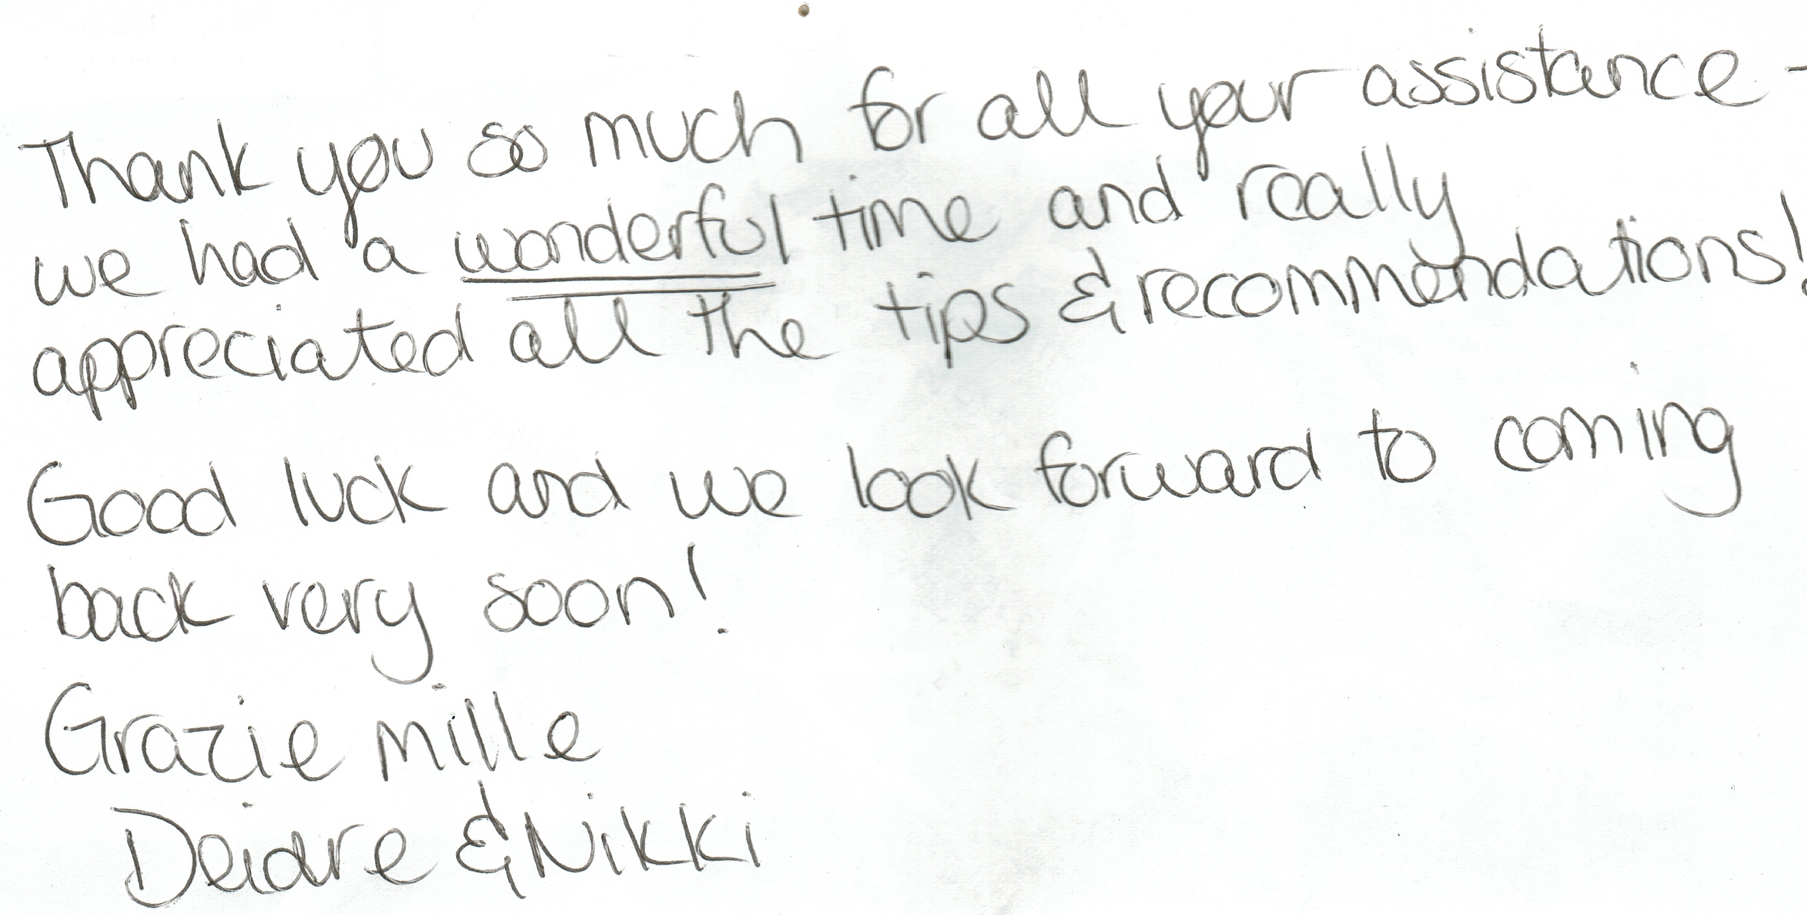 Thank you so much for all your assistance -
we had a wonderful time and really
appreciated all the tips & recommendations!
Good luck and we look forward to coming
back very soon!
Grazie mille
Deidre & Nikki